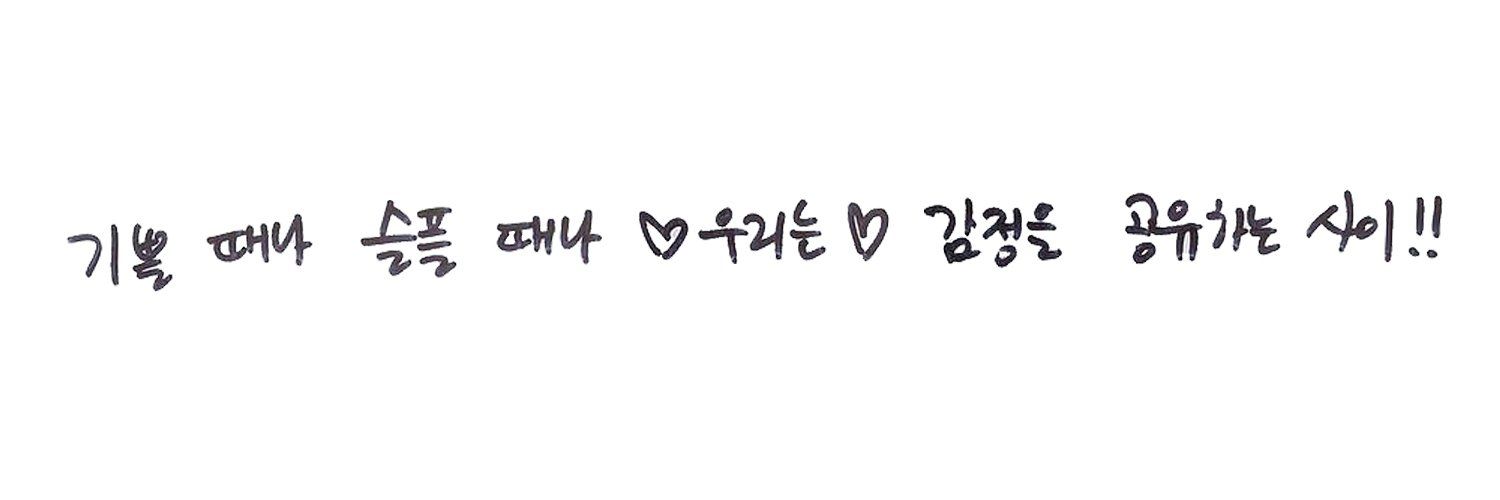 기쁠 때나 슬플 때나 ♡우리는♡ 감정을 공유하는 사이!!